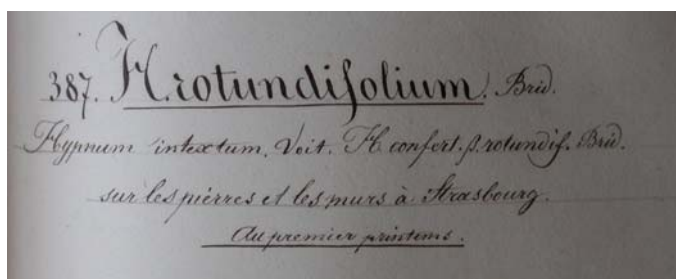 387. H. rotundifolium. Brid.
Hypnum intextum. Voit. H. confert. β. rotundif. Brid.
sur les piérres et les murs à Strasbourg.
Au premier printems.